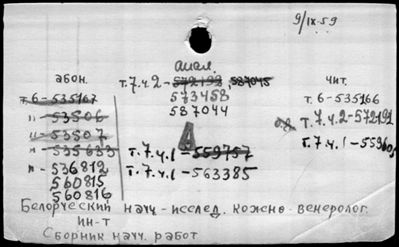 9/IX.59
абон.
т.6-535167
" - 53506
" - 53507
" - 535633
" - 536812
560815
560816
анал.
т.7.ч.2 - 572192, 587045
573458
587044
т.7.ч.1 - 559757
т.7.ч.1 - 563385
чит.
т.6-535166
т.7.ч.2-572191
т.7.ч.1 - 559605
Белорусский научн-исслед. кожно-венеролог.
ин-т
Сборник научн. работ